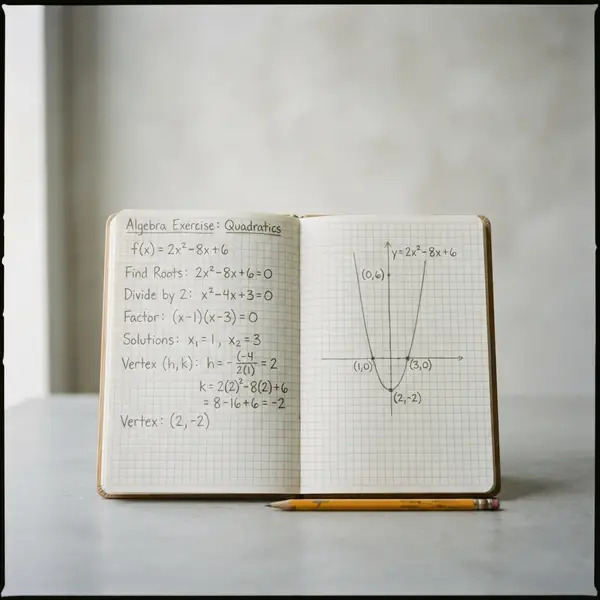 Algebra Exercise: Quadratics
f(x) = 2x²-8x+6
Find Roots: 2x²-8x+6=0
Divide by 2: x²-4x+3=0
Factor: (x-1)(x-3)=0
Solutions: x₁=1, x₂=3
Vertex (h,k): h=-(-4/2(1)=2
k=2(2)²-8(2)+6
=8-16+6=-2
Vertex: (2,-2)
y=2x²-8x+6
(0,6)
(1,0)
(3,0)
(2,-2)